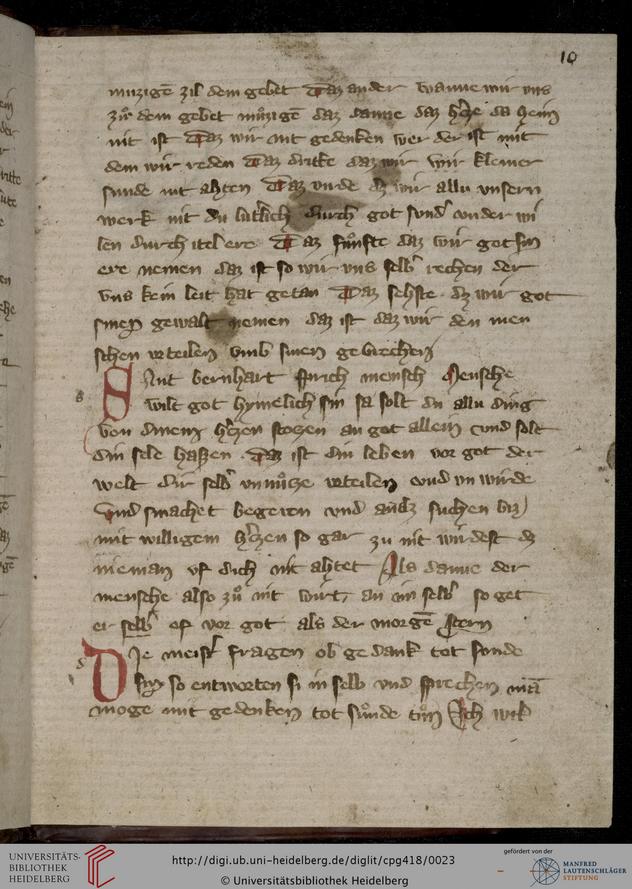 10
muzigē zil dem gebet Daz ander wanne wir vns
zů dem gebet můzigē daz danne daz h'tze da heim
nit ist Daz wir nit gedenken wer der ist mit
dem wir reden Daz dritte daz wir wir kleiner
sunde nit ahten Daz vierde dz wir allu vnsern
werk nit du lut'lich durch got sund' vnder wi
len durch itel ere Daz fůnfte daz wir got sin
ere nemen daz ist so wir vns selb' rechen der
vns kein leit hat getan Daz sehste dz wir got
sinen gewalt nemen daz ist daz wir den men
schen vrteilen vmb sinen gebrechen
Sant bernhart sprich mensch Mensche
wilt got hymelich sin sa solt du allu ding
von dinem h'tzen stozen an got allein vnd solt
din sele hassen Daz ist din leben vor got der
welt dir selb' vnnůtze vrteilen vnd vnwirde
vnd smachet begeren vnd
suchen
mit willigem h'tzen so gar zu nit wirdest dz
nieman vf dich nit ahtet Als danne der
mensche also zů nit wirt an im selb' so get
er selb' of vor got als der morgē stern
Die meist' fragen ob gedank tot sunde
sin so entworten si in selb vnd sprechen mā
moge mit gedenken tot sůnde tůn Ich wil
UNIVERSITÄTS-
BIBLIOTHEK
HEIDELBERG
http://digi.ub.uni-heidelberg.de/diglit/cpg418/0023
© Universitätsbibliothek Heidelberg
gefördert von der
MANFRED
LAUTENSCHLÄGER
STIFTUNG